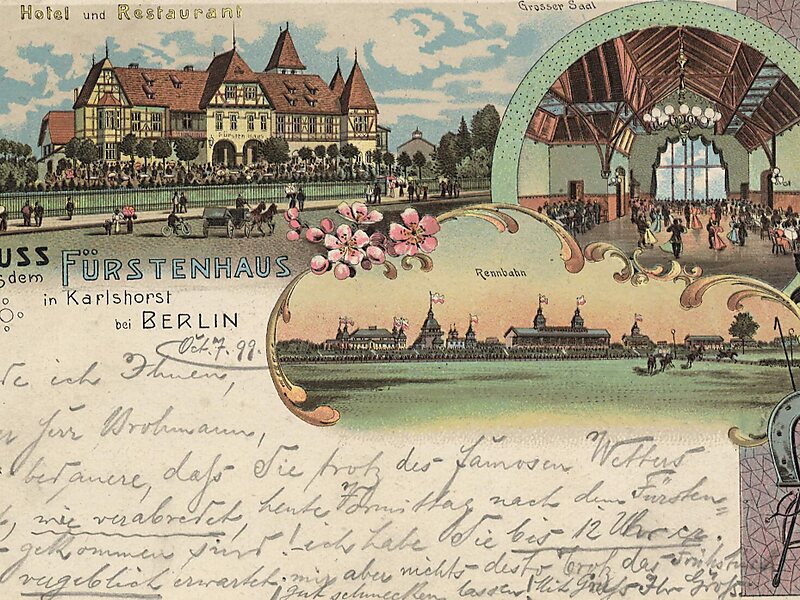 Hotel und Restaurant
Grosser Saal
FÜRSTENHAUS
uss
dem FÜRSTENHAUS
Rennbahn
in Karlshorst
bei BERLIN
Oct. 7. 99.
de ich Ihnen,
Herr Brohmann,
bedauere, daß Sie trotz des famosen Wetters
wie verabredet, heute Vormittag nach dem Fürsten=
gekommen sind! ich habe Sie bis 12 Uhr
vergeblich erwartet, mir aber nichts desto trotz das Frühstück
gut schmecken lassen! Mit Gruß Ihr